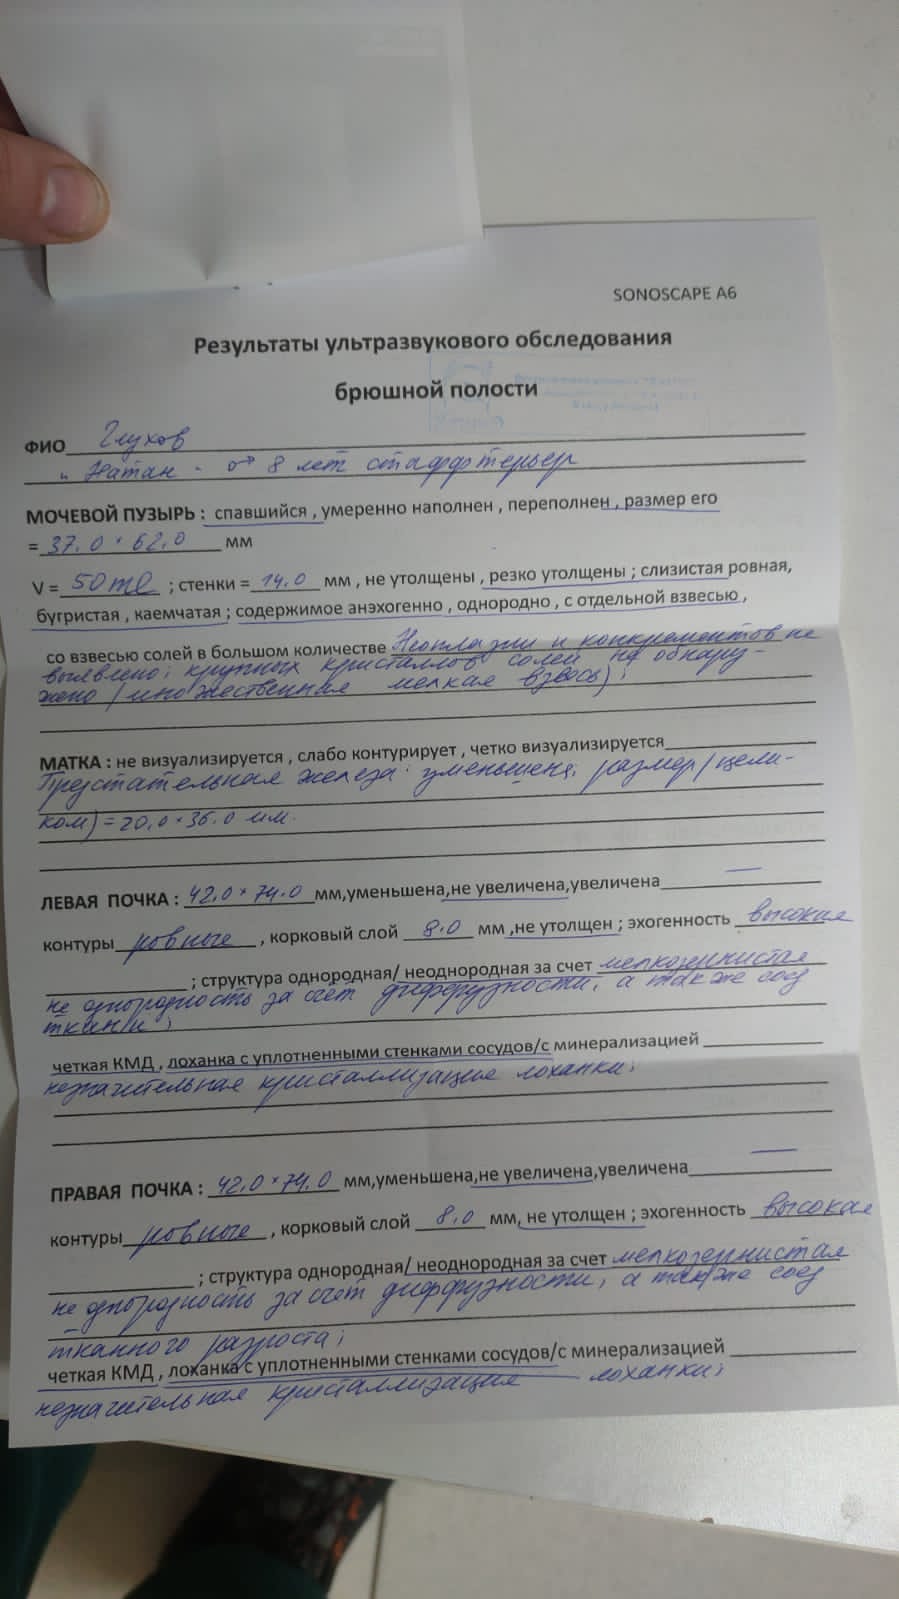 SONOSCAPE A6
Результаты ультразвукового обследования
брюшной полости
ФИО Глухов
Натан - ♂ 8 лет стаффтерьер
МОЧЕВОЙ ПУЗЫРЬ : спавшийся , умеренно наполнен , переполнен , размер его
= 37.0 × 62.0 мм
V = 50 ml ; стенки = 14.0 мм , не утолщены , резко утолщены ; слизистая ровная,
бугристая , каемчатая ; содержимое анэхогенно , однородно , с отдельной взвесью ,
со взвесью солей в большом количестве Неоплазии и конкрементов не
выявлено; крупных кристаллов солей не обнару-
жено (множественная мелкая взвесь);
МАТКА : не визуализируется , слабо контурирует , четко визуализируется
Предстательная железа: уменьшена, размер (цели-
ком) = 20,0 × 36.0 мм.
ЛЕВАЯ ПОЧКА : 42.0 × 74.0 мм,уменьшена,не увеличена,увеличена —
контуры ровные , корковый слой 8.0 мм ,не утолщен ; эхогенность высокая
; структура однородная/ неоднородная за счет мелкозернистая
не однородность за счёт диффузности, а также соед
ткани;
четкая КМД , лоханка с уплотненными стенками сосудов/с минерализацией
незначительная кристаллизация лоханки;
ПРАВАЯ ПОЧКА : 42.0 × 74.0 мм,уменьшена,не увеличена,увеличена —
контуры ровные , корковый слой 8.0 мм, не утолщен ; эхогенность высокая
; структура однородная/ неоднородная за счет мелкозернистая
не однородность за счёт диффузности, а также соед
тканного разроста;
четкая КМД , лоханка с уплотненными стенками сосудов/с минерализацией
незначительная кристаллизация лоханки;